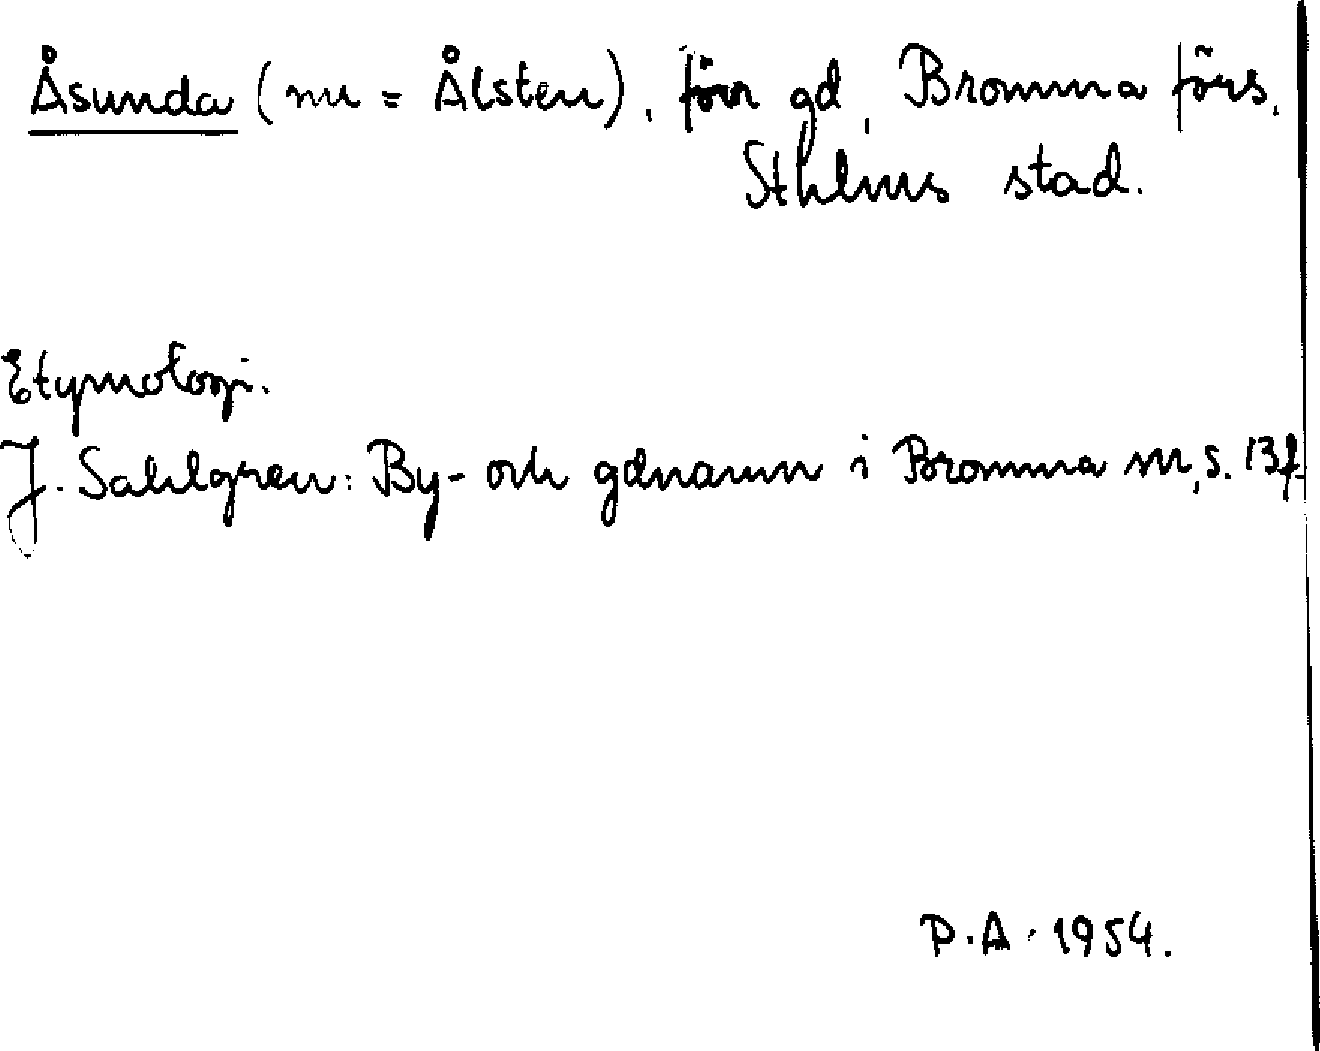 Åsunda (nu = Ålsten), förr gd, Bromma förs.
Sthlms stad.
Etymologi.
J. Sahlgren: By- och gdnamn i Bromma sn, s. 13 f.
P.A. 1954.